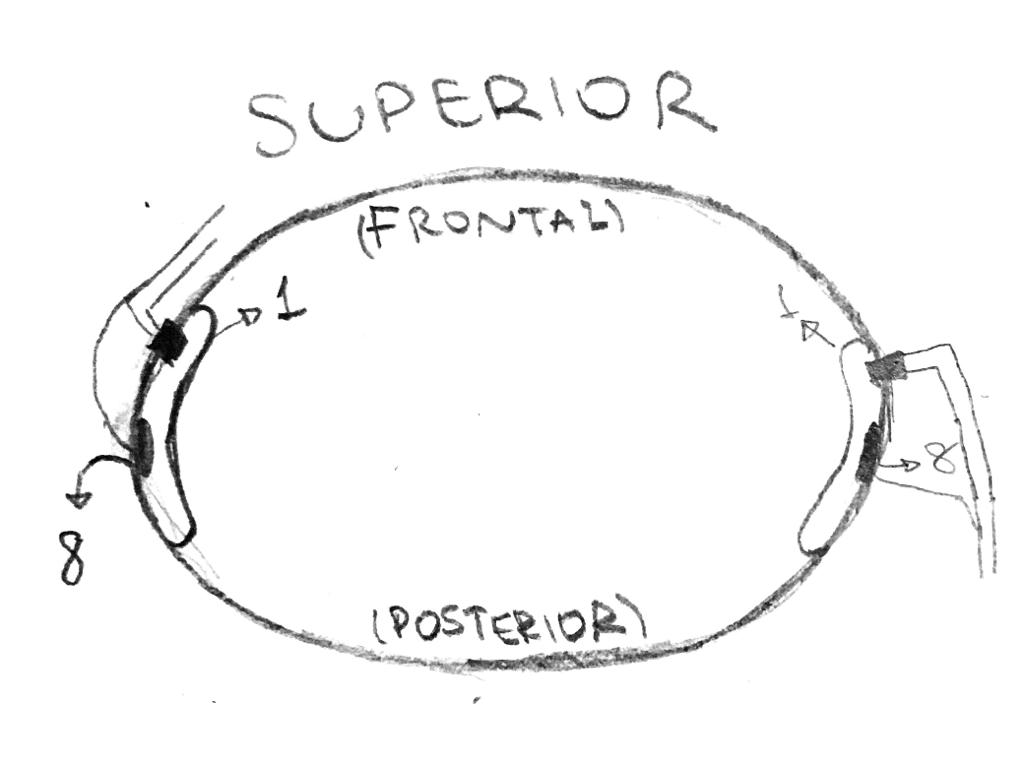 SUPERIOR
(FRONTAL)
1
1
8
8
(POSTERIOR)